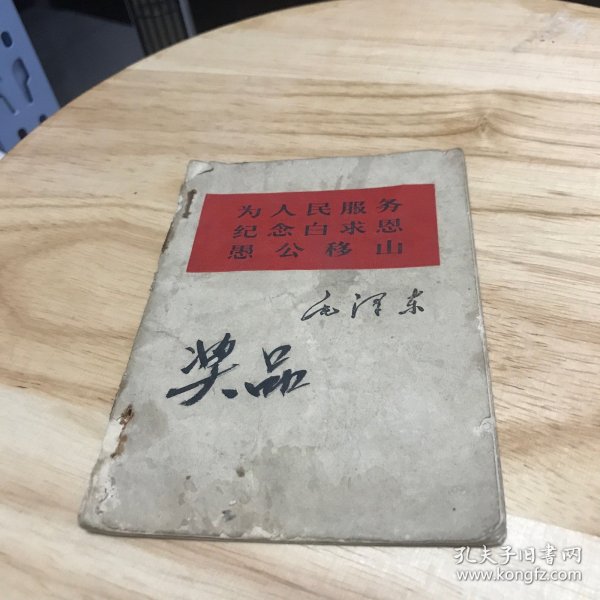 为人民服务
纪念白求恩
愚公移山
毛泽东
奖品
孔夫子旧书网
www.kongfz.com